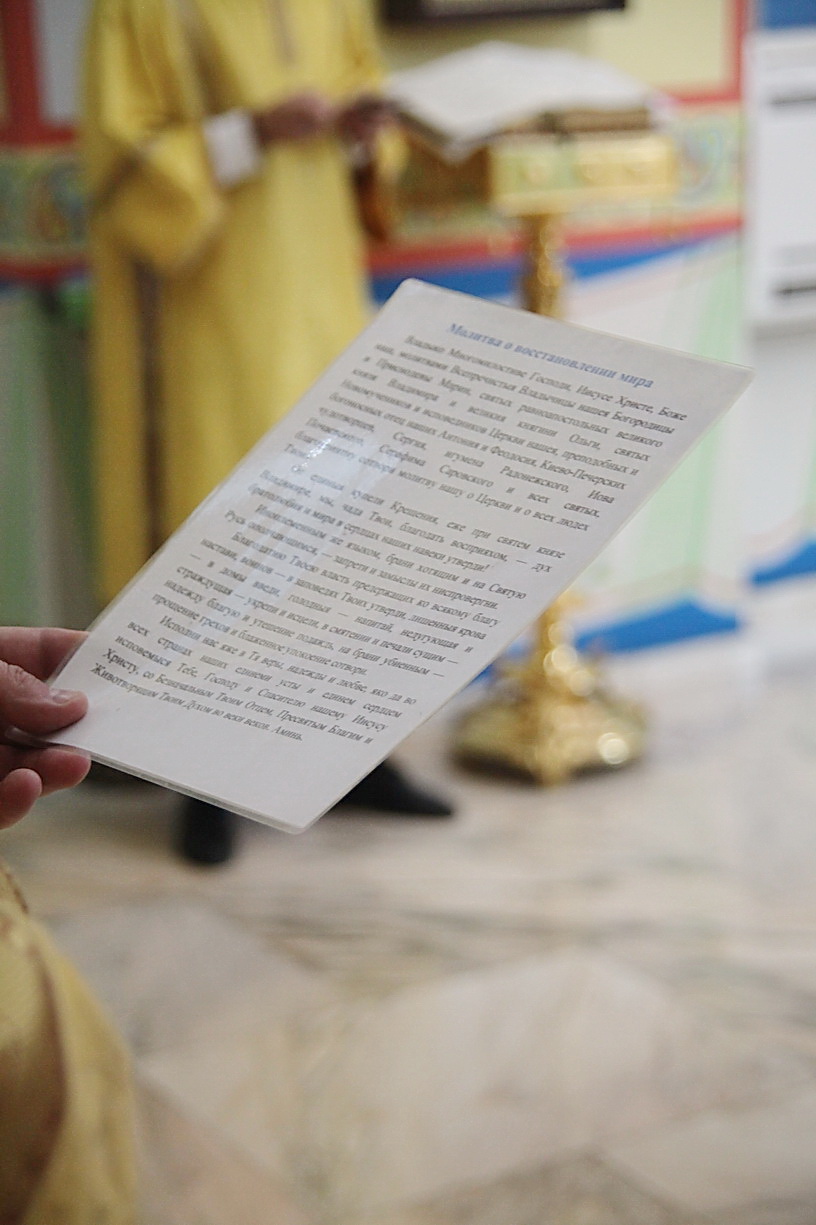 Молитва о восстановлении мира
Владыко Многомилостиве Господи, Иисусе Христе, Боже
наш, молитвами Всепречистыя Владычицы нашея Богородицы
и Приснодевы Марии, святых равноапостольных великого
князя Владимира и великия княгини Ольги, святых
Новомучеников и исповедников Церкви нашея, преподобных и
богоносных отец наших Антония и Феодосия, Киево-Печерских
чудотворцев, Сергия, игумена Радонежского, Иова
Почаевского, Серафима Саровского и всех святых,
благоприятну сотвори молитву нашу о Церкви и о всех людех
Твоих.
От единыя купели Крещения, еже при святем князе
Владимире, мы, чада Твоя, благодать восприяхом, — дух
братолюбия и мира в сердцах наших навеки утверди!
Иноплеменным же языком, брани хотящим и на Святую
Русь ополчающимся, — запрети и замыслы их ниспровергни.
Благодатию Твоею власть предержащих ко всякому благу
настави, воинов — в заповедях Твоих утверди, лишенныя крова
— в домы введи, голодныя — напитай, недугующая и
страждущая — укрепи и исцели, в смятении и печали сущим —
надежду благую и утешение подаждь, на брани убиенным —
прощение грехов и блаженное упокоение сотвори.
Исполни нас яже в Тя веры, надежды и любве, яко да во
всех странах наших едиными усты и единем сердцем
исповемыся Тебе, Господу и Спасителю нашему Иисусу
Христу, со Безначальным Твоим Отцем, Пресвятым Благим и
Животворящим Твоим Духом во веки веков. Аминь.